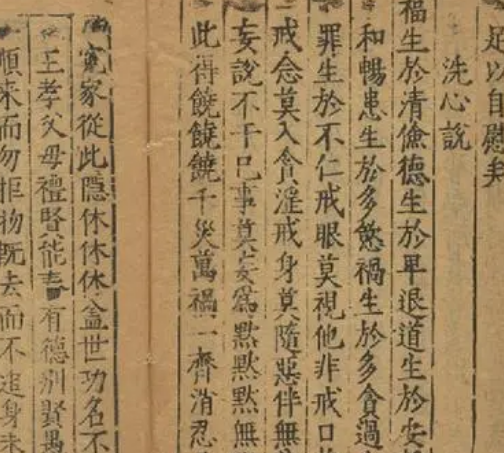 足以自慰矣
洗心說
福生於清儉德生於卑退道生於安
和暢患生於多慾禍生於多貪過
罪生於不仁戒眼莫視他非戒口
戒念莫入貪淫戒身莫隨惡伴無
妄說不干己事莫妄為默默默無
此得饒饒饒千災萬禍一齊消忍
冤家從此隱休休休盖世功名不
王孝父母禮賢能奉有德別賢愚
順来而勿拒物旣去而不追身未